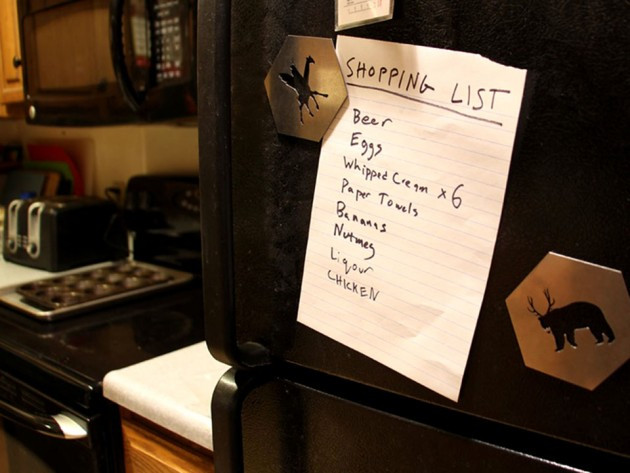 SHOPPING LIST
Beer
Eggs
Whipped Cream x6
Paper Towels
Bananas
Nutmeg
Liqour
CHICKEN